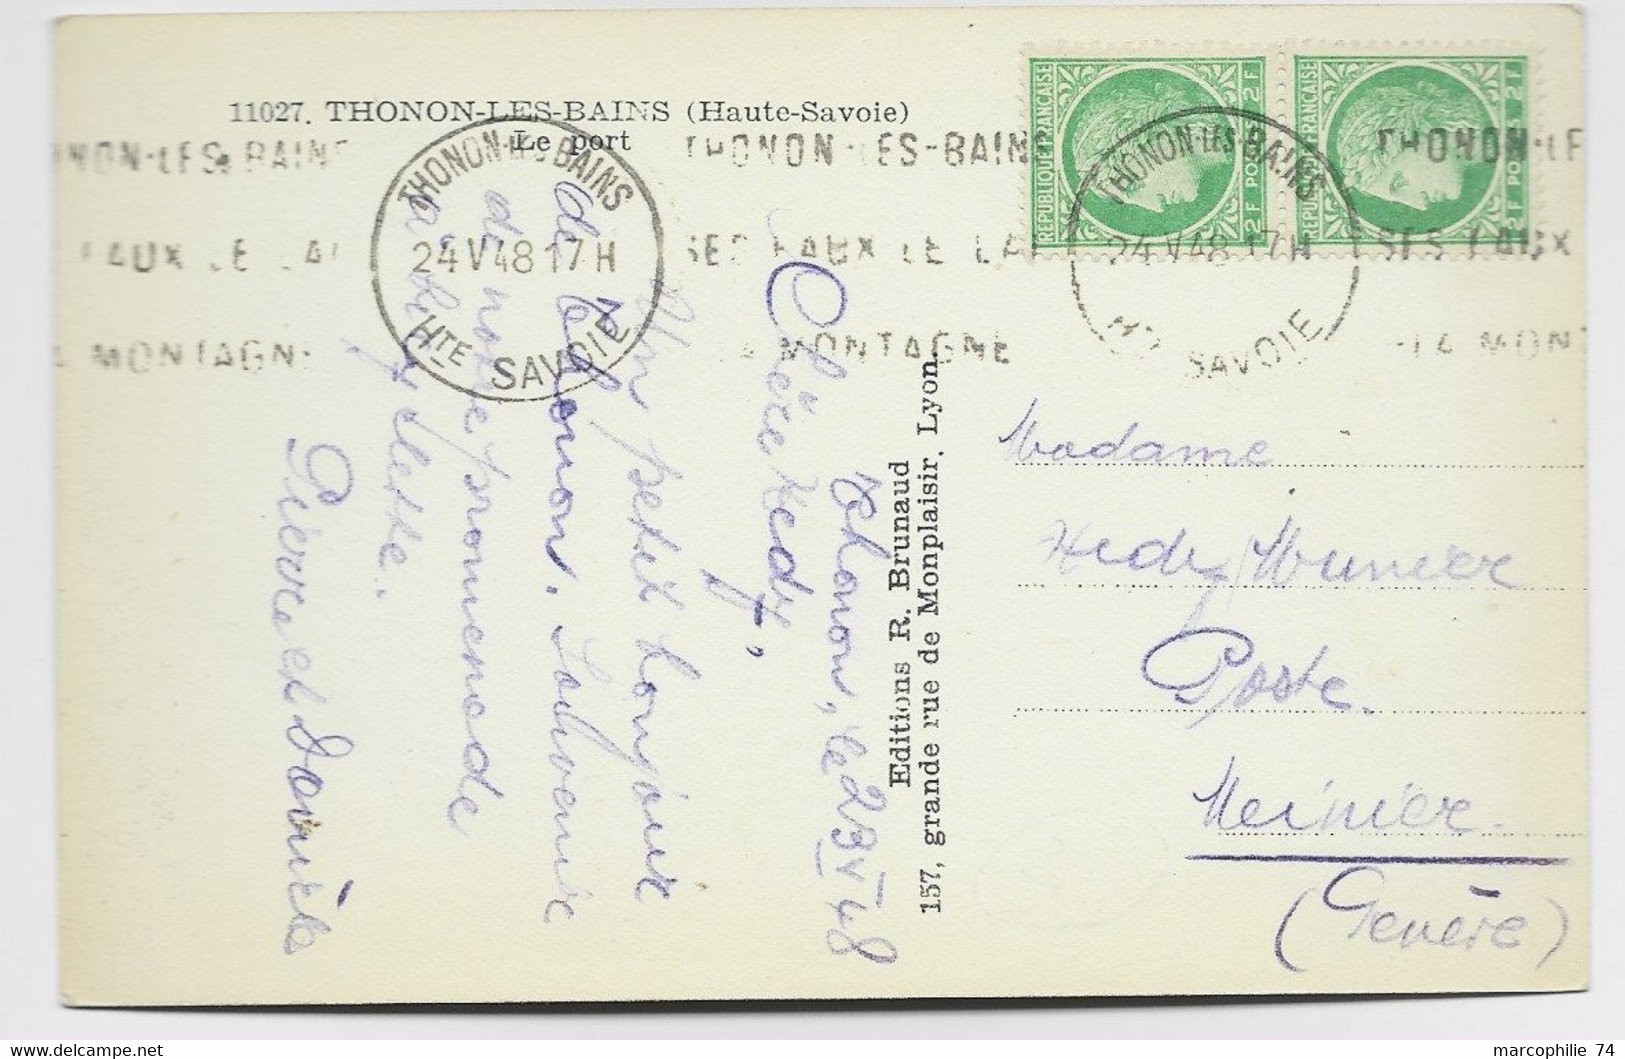 11027. THONON-LES-BAINS (Haute-Savoie)
Le port
THONON-LES-BAINS
24 V 48 17 H
HTE SAVOIE
NON-LES-BAINS
EAUX LE LA
MONTAGNE
THONON-LES-BAIN
SES EAUX LE LA
LA MONTAGNE
REPUBLIQUE FRANÇAISE
2F POSTES 2F
REPUBLIQUE FRANÇAISE
2F POSTES 2F
THONON-LES-BAINS
24 V 48 17 H
HTE SAVOIE
THONON-LE
SES EAUX
LA MONT
Thonon, le 23 V 48
Chère Hedy,
Un petit bonjour
de Thonon. Souvenir
de notre promenade
à bicyclette.
Pierre et Daniel
Editions R. Brunaud
157, grande rue de Monplaisir. Lyon.
Madame
Hedy Munier
Poste.
Meinier.
(Genève)
marcophilie 74